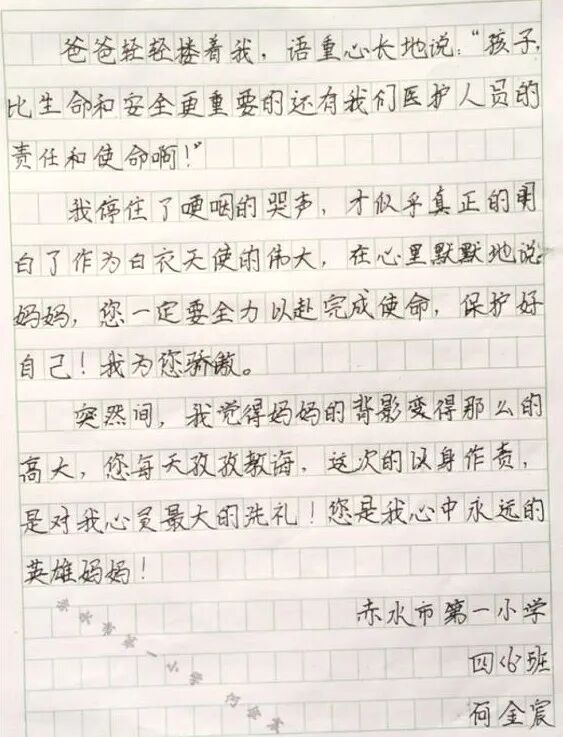 爸爸轻轻搂着我，语重心长地说：“孩子，
比生命和安全更重要的还有我们医护人员的
责任和使命啊！”
我停住了哽咽的哭声，才似乎真正的明
白了作为白衣天使的伟大，在心里默默地说：
妈妈，您一定要全力以赴完成使命，保护好
自己！我为您骄傲。
突然间，我觉得妈妈的背影变得那么的
高大，您每天孜孜教诲，这次的以身作责，
是对我心灵最大的洗礼！您是我心中永远的
英雄妈妈！
赤水市第一小学
四（6）班
何金宸